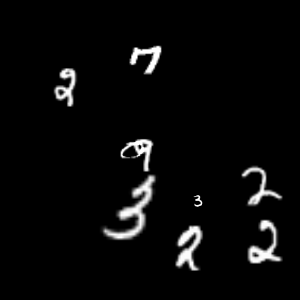 7
2
9
3
3 2
2 2